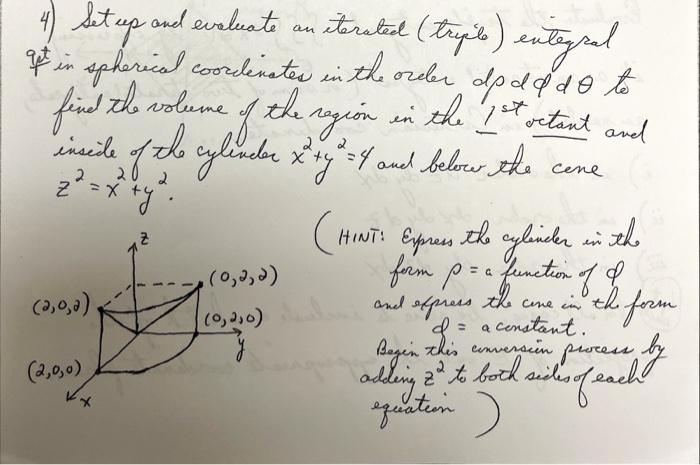 4) Set up and evaluate an iterated (triple) integral
9pt in spherical coordinates in the order dρ dϕ dθ to
find the volume of the region in the 1st octant and
inside of the cylinder x²+y²=4 and below the cone
z²=x²+y².
(HINT: Express the cylinder in the
form ρ = a function of ϕ
and express the cone in the form
ϕ = a constant.
Begin this conversion process by
adding z² to both sides of each
equation)
z
(0,2,2)
(2,0,2)
(0,2,0)
y
(2,0,0)
x